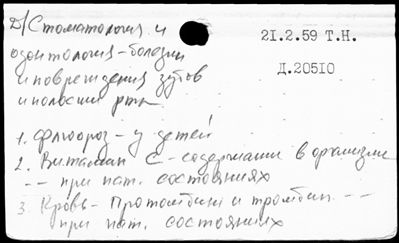 Д/Стоматология и
одонтология - болезни
и повреждения зубов
и полости рта
21.2.59 Т.Н.
Д.20510
1. Флюороз - у детей
2. Витамин С - содержание в организме
-- при пат. состояниях
3. Кровь - Протромбин и тромбин --
при пат. состояниях